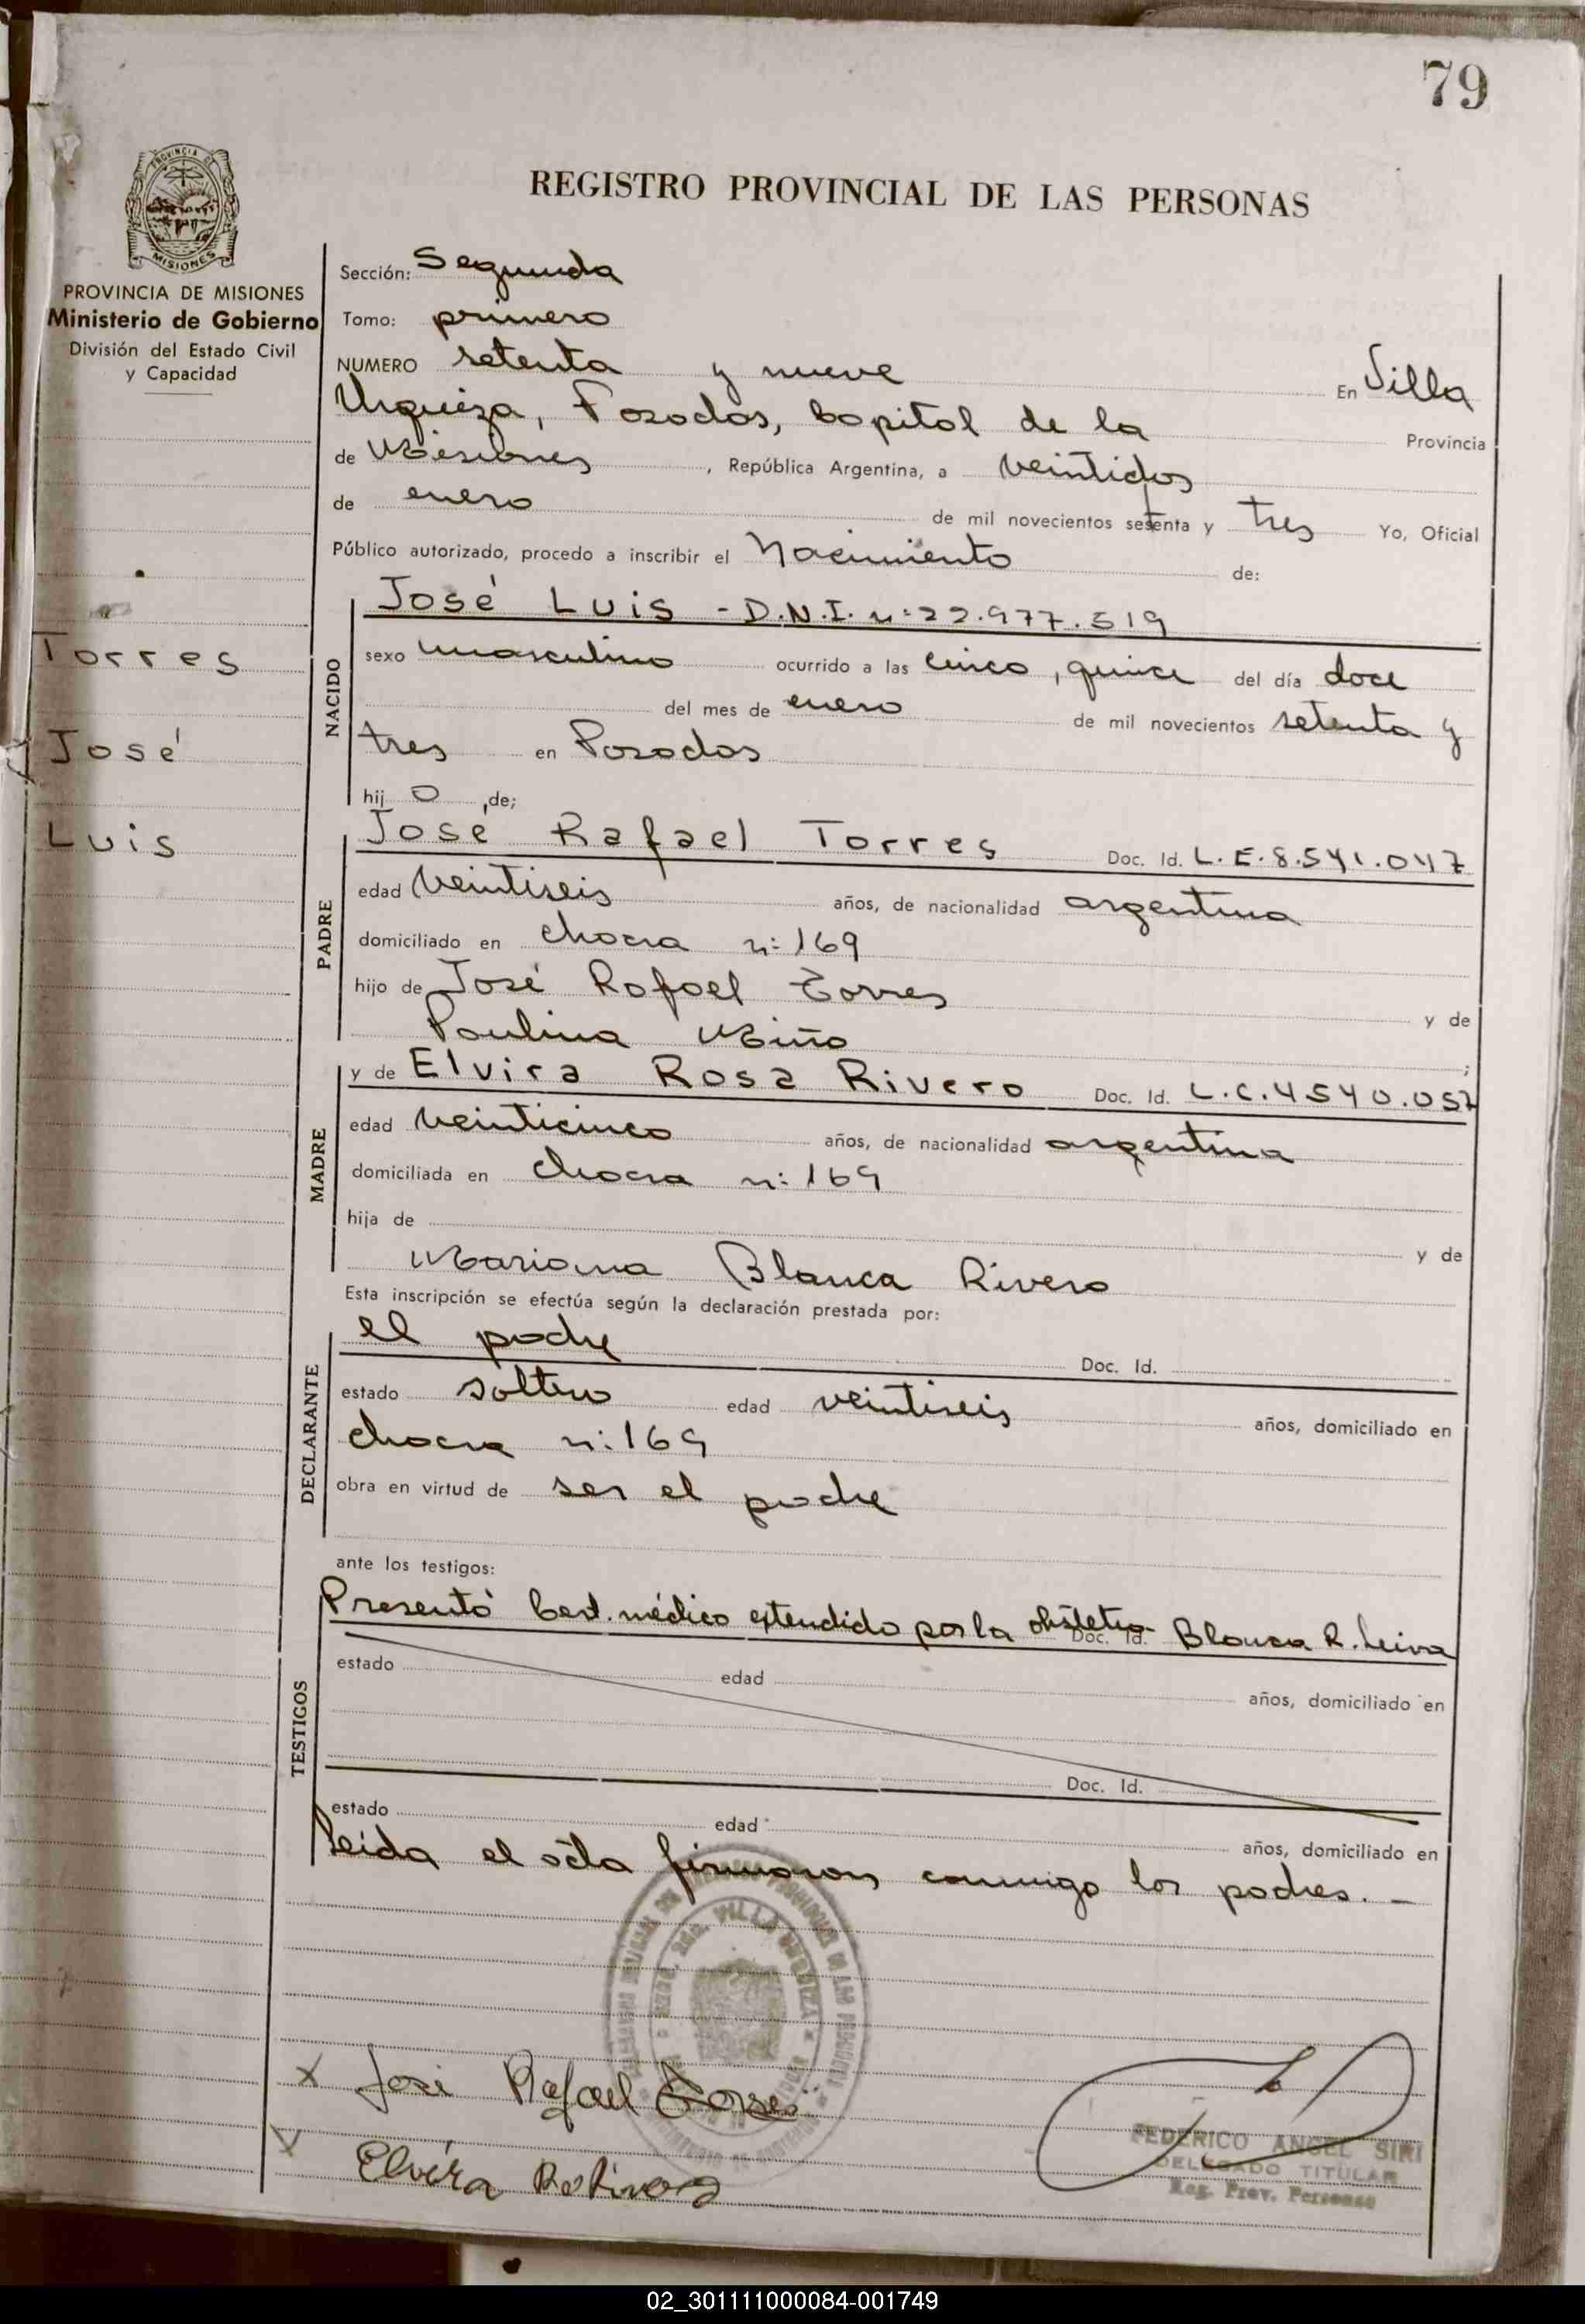 79
REGISTRO PROVINCIAL DE LAS PERSONAS
PROVINCIA DE MISIONES
PROVINCIA DE MISIONES
Ministerio de Gobierno
División del Estado Civil
y Capacidad
Torres
José
Luis
Sección: Segunda
Tomo: primero
NUMERO setenta y nueve En Villa
Urquiza, Posadas, Capital de la Provincia
de Misiones, República Argentina, a veintidos
de enero de mil novecientos setenta y tres Yo, Oficial
Público autorizado, procedo a inscribir el Nacimiento de:
NACIDO
José Luis - D.N.I. nº 22.977.519
sexo masculino ocurrido a las cinco, quince del día doce
del mes de enero de mil novecientos setenta y
tres en Posadas
hij o de;
PADRE
José Rafael Torres Doc. Id. L.E. 8.541.047
edad veintiseis años, de nacionalidad argentina
domiciliado en chacra nº 169
hijo de José Rafael Torres y de
Paulina Miño ;
MADRE
y de Elvira Rosa Rivero Doc. Id. L.C. 4540.057
edad veinticinco años, de nacionalidad argentina
domiciliada en chacra nº 169
hija de y de
Mariana Blanca Rivero
Esta inscripción se efectúa según la declaración prestada por:
DECLARANTE
el padre Doc. Id.
estado soltero edad veintiseis años, domiciliado en
chacra nº 169
obra en virtud de ser el padre
ante los testigos:
TESTIGOS
Presentó Cert. médico extendido por la obstetra Doc. Id. Blanca R. Leiva
estado edad años, domiciliado en
Doc. Id.
estado edad años, domiciliado en
Leida el acta firmaron conmigo los padres. -
VILLA URQUIZA
x José Rafael Torres
x Elvira
FEDERICO ANGEL SIRI
DELEGADO TITULAR
Reg. Prov. Personas
02_301111000084-001749